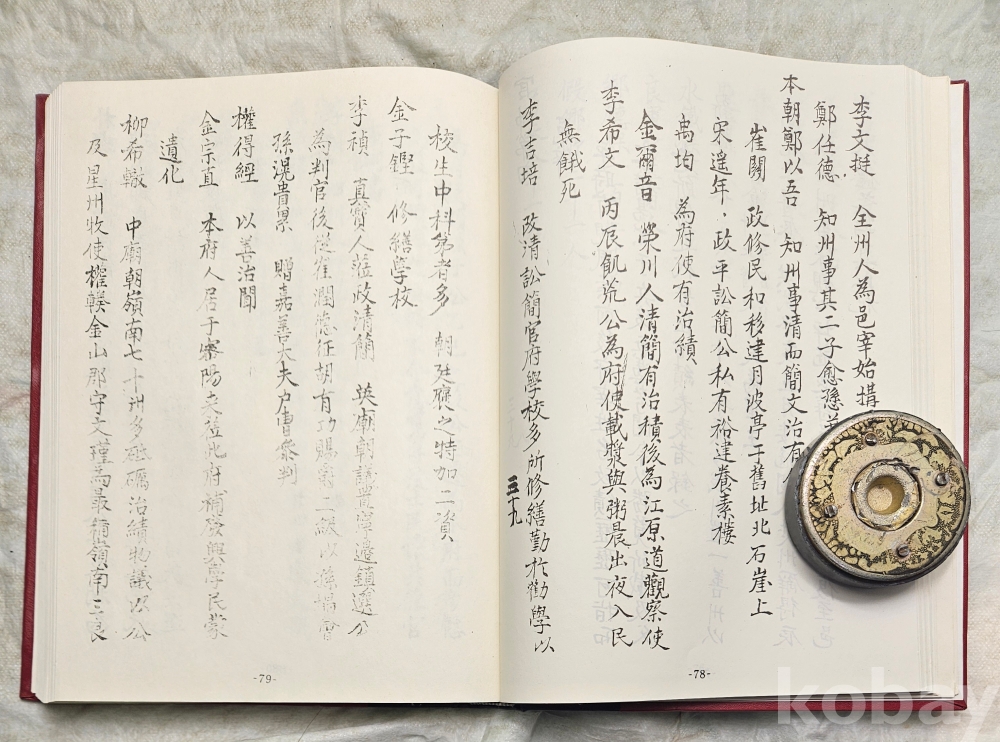 李文挺 全州人為邑宰始搆
鄭任德 知州事其二子愈孫並
本朝鄭以吾 知州事清而簡文治有
崔關 政修民和移建月波亭于舊址北石崖上
宋遙年 政平訟簡公私有裕建養素樓
禹均 為府使有治績
金爾音 榮川人清簡有治積後為江原道觀察使
李希文 丙辰飢荒公為府使載漿與粥晨出夜入民
無餓死
李吉培 政清訟簡官府學校多所修繕勤於勸學以
三十九
-78-
校生中科第者多 朝廷褒之特加二資
金子鏗 修繕學校
李禎 真寶人莅政清簡 英廟朝議置 邊鎮選公
為判官後從崔潤德征胡有功賜爵二級以孫 曾
孫滉貴累 贈嘉善大夫户曹參判
權得經 以善治聞
金宗直 本府人居于密陽夫莅此府補 興學民蒙
遺化
柳希轍 中廟朝嶺南七十州多砥礪治績物議以公
及星州牧使權輳金山郡守文瑾為最稱嶺南三良
-79-
kobay